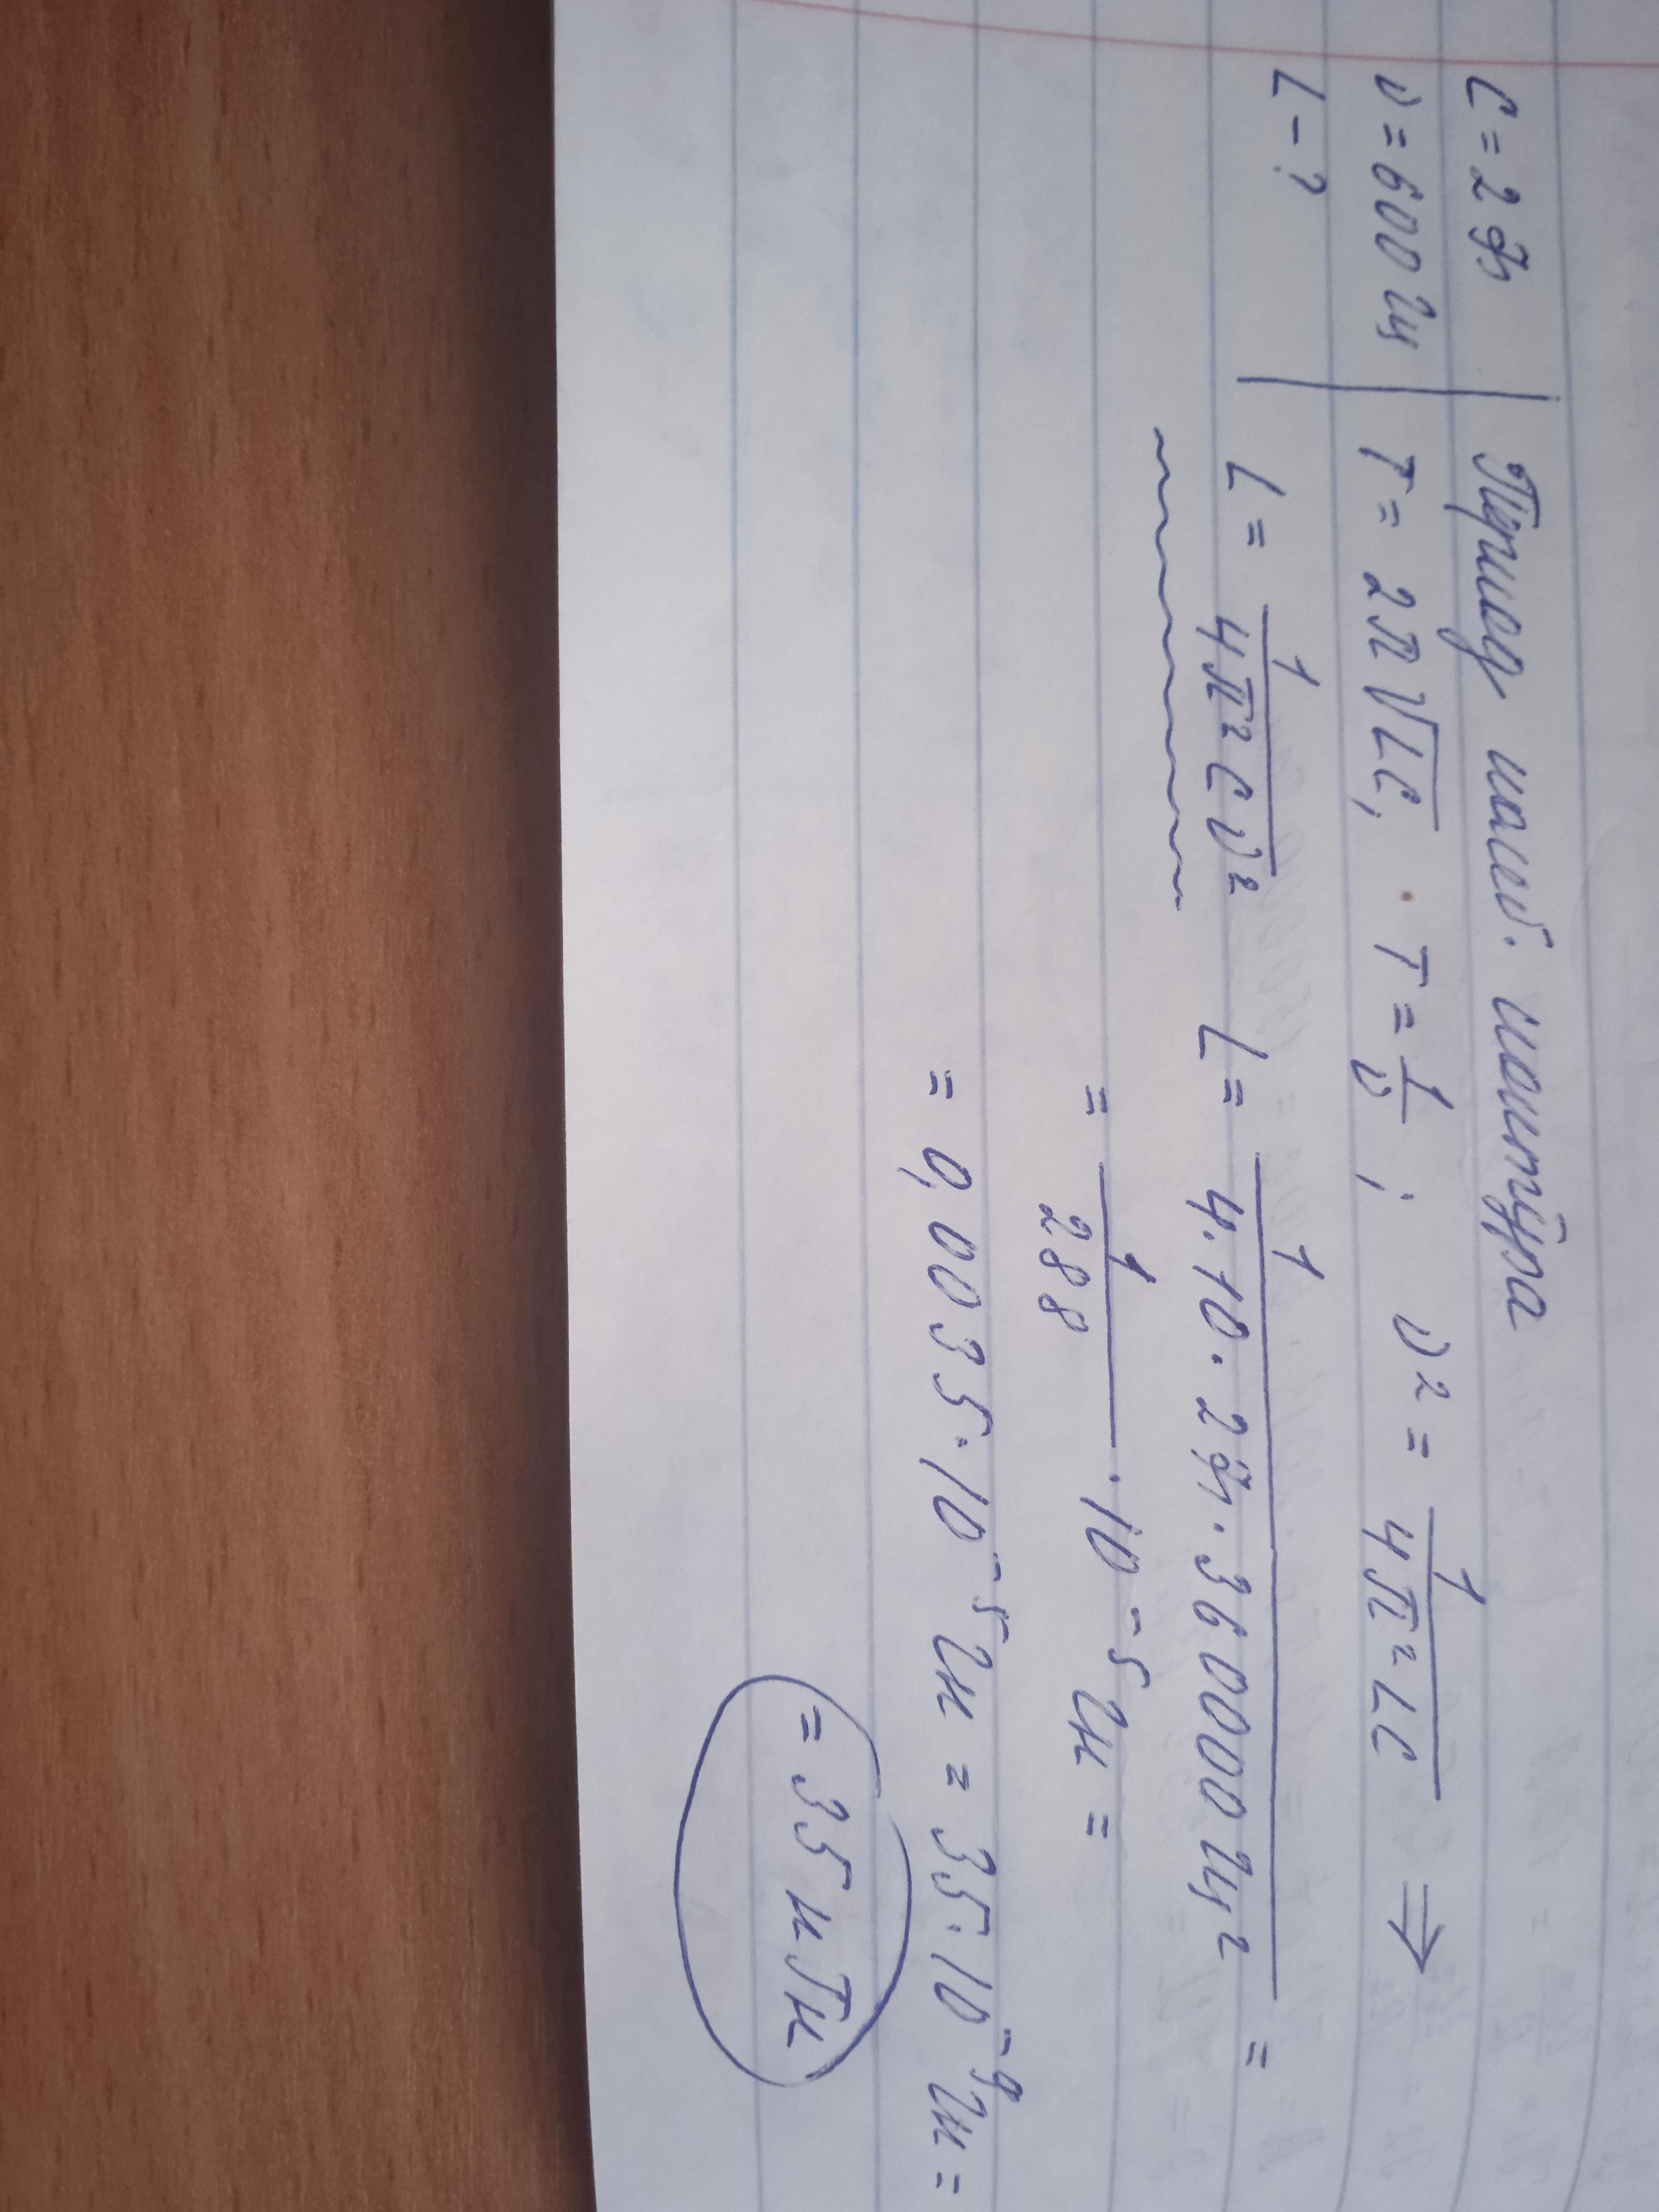 C = 2 Ф
ν = 600 Гц
L - ?
Период колеб. контура
T = 2π√LC, T = 1/ν ; ν² = 1/4π²LC ⇒
L = 1/4π²Cν² L = 1/4·10·2Ф·360000 Гц² =
= 1/288 · 10⁻⁵ Гн =
= 0,0035·10⁻⁵ Гн = 35·10⁻⁹ Гн =
= 35 нГн